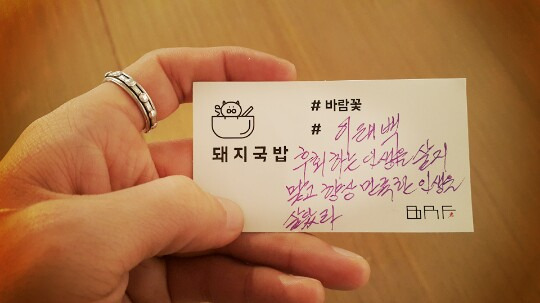 # 바람꽃
# 이태백
돼지국밥
후회하는 인생을 살지
말고 항상 만족한 인생을
살았다